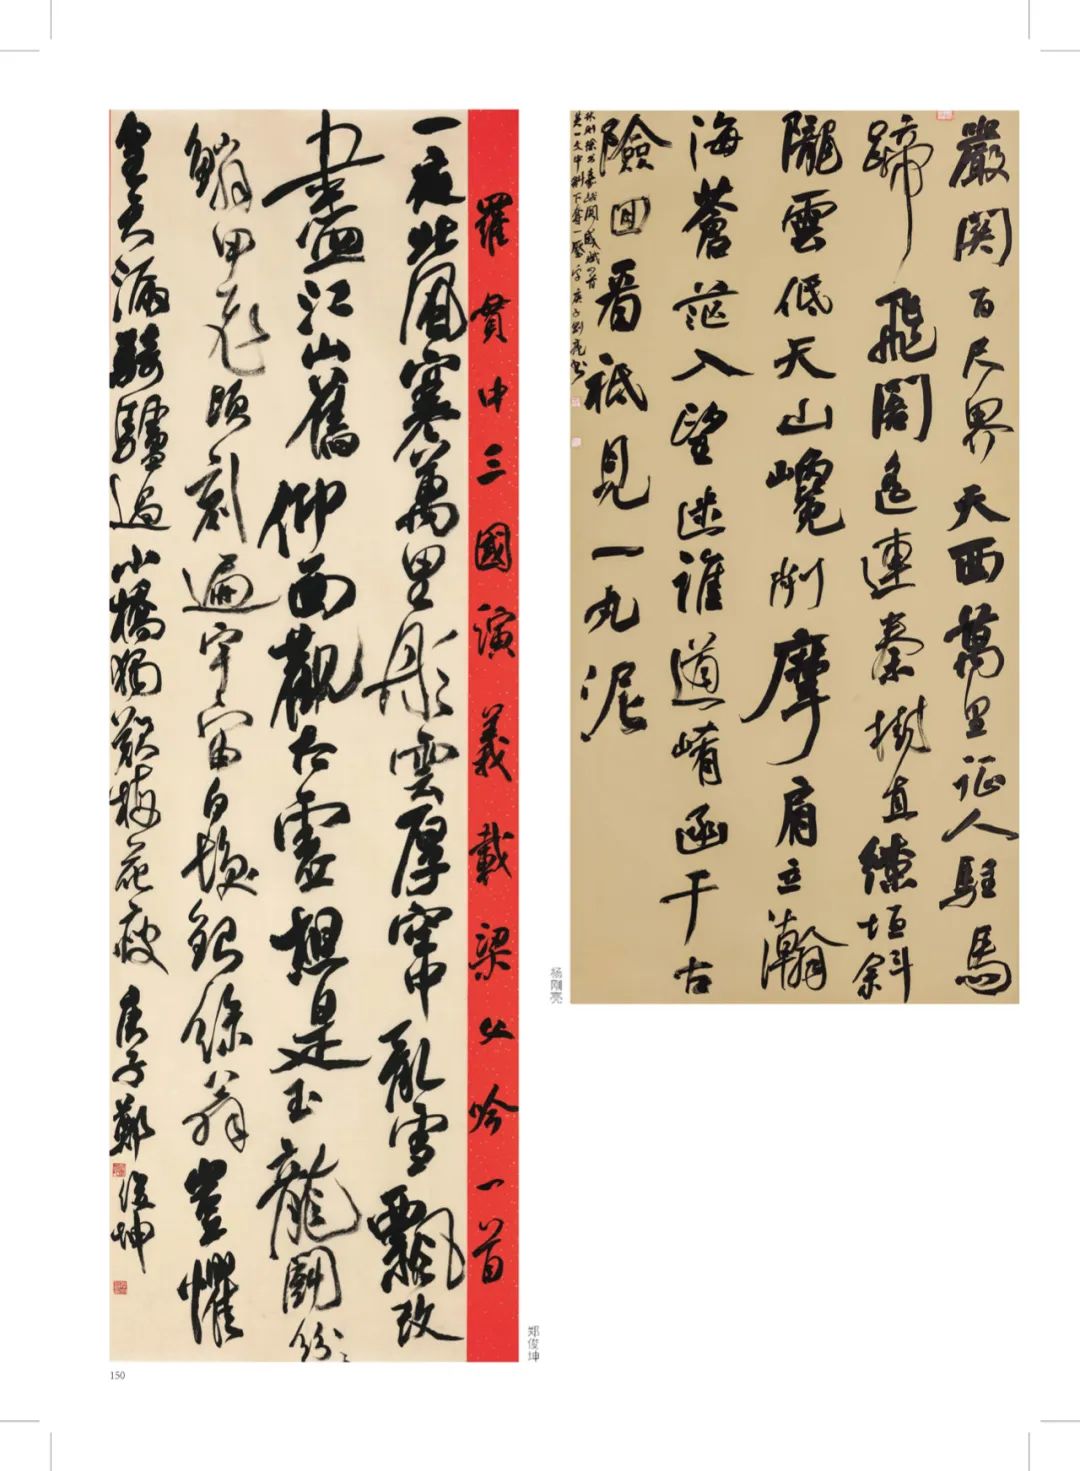 嚴關百尺界天西萬里征人駐馬
蹄飛閣遙連秦樹直繚垣斜
隴雲低天山巉削摩肩立瀚
海蒼茫入望迷誰道崤函千古
險回看祗見一丸泥
林則徐出嘉峪關感賦四首
其一文中斜下奪一壓字庚子剛亮書
杨刚亮
羅貫中三國演義載梁父吟一首
一夜北風寒萬里彤雲厚空中亂雪飄改
盡江山舊仰面觀太虛想是玉龍鬭紛々
鱗甲飛頃刻遍宇宙白髮銀絲翁豈懼
皇天漏騎驢過小橋獨歎梅花瘦 庚子鄭俊坤
郑俊坤
150